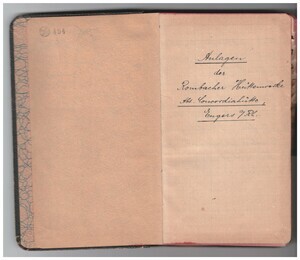 Anlagen
der
Rombacher Hüttenwerke
Abt. Concordiahütte,
Engers a/Rh.